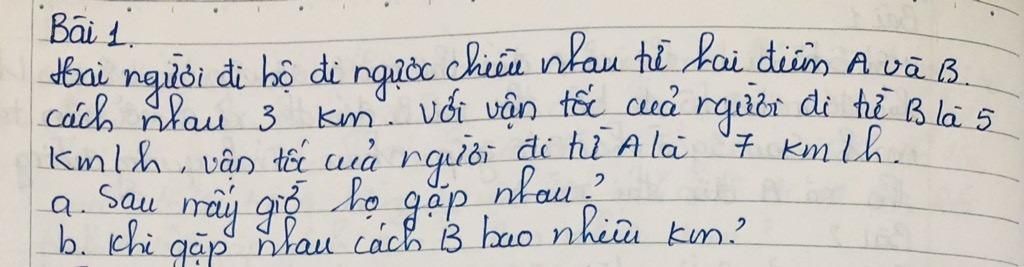 Bài 1.
Hai người đi bộ đi ngược chiều nhau từ hai điểm A và B.
cách nhau 3 km. Với vận tốc của người đi từ B là 5
km/h, vận tốc của người đi từ A là 7 km/h.
a. Sau mấy giờ họ gặp nhau?
b. Khi gặp nhau cách B bao nhiêu km?